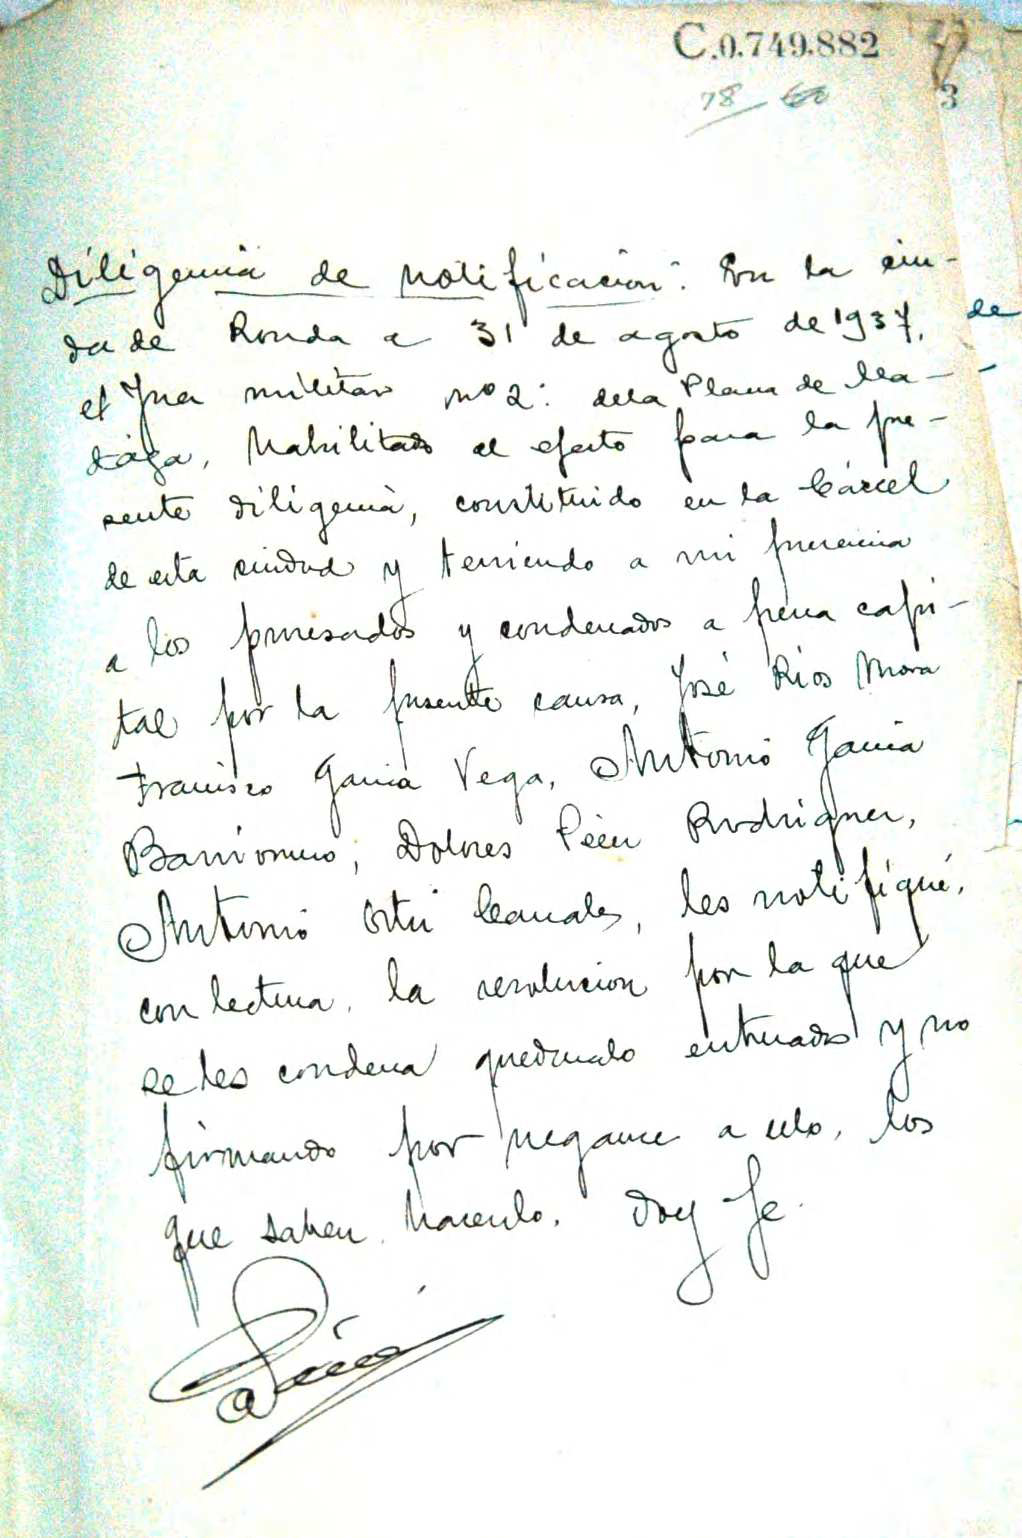 C.0.749.882
78
3
Diligencia de notificacion: En la ciu-
da de Ronda a 31 de agosto de 1937,
el Juez militar nº 2: de la Plaza de Ma-
laga, habilitado al efecto para la pre-
sente diligencia, constituido en la Cárcel
de esta ciudad y teniendo a mi presencia
a los procesados y condenados a pena capi-
tal por la presente causa, José Ríos Mora
Francisco Garcia Vega, Antonio Garcia
Barrionuevo, Dolores Pérez Rodriguez,
Antonio Ortiz Canales, les notifiqué,
con lectura, la resolucion por la que
se les condena quedando enterados y no
firmando por negarse a ello, los
que saben hacerlo. Doy fe.
de